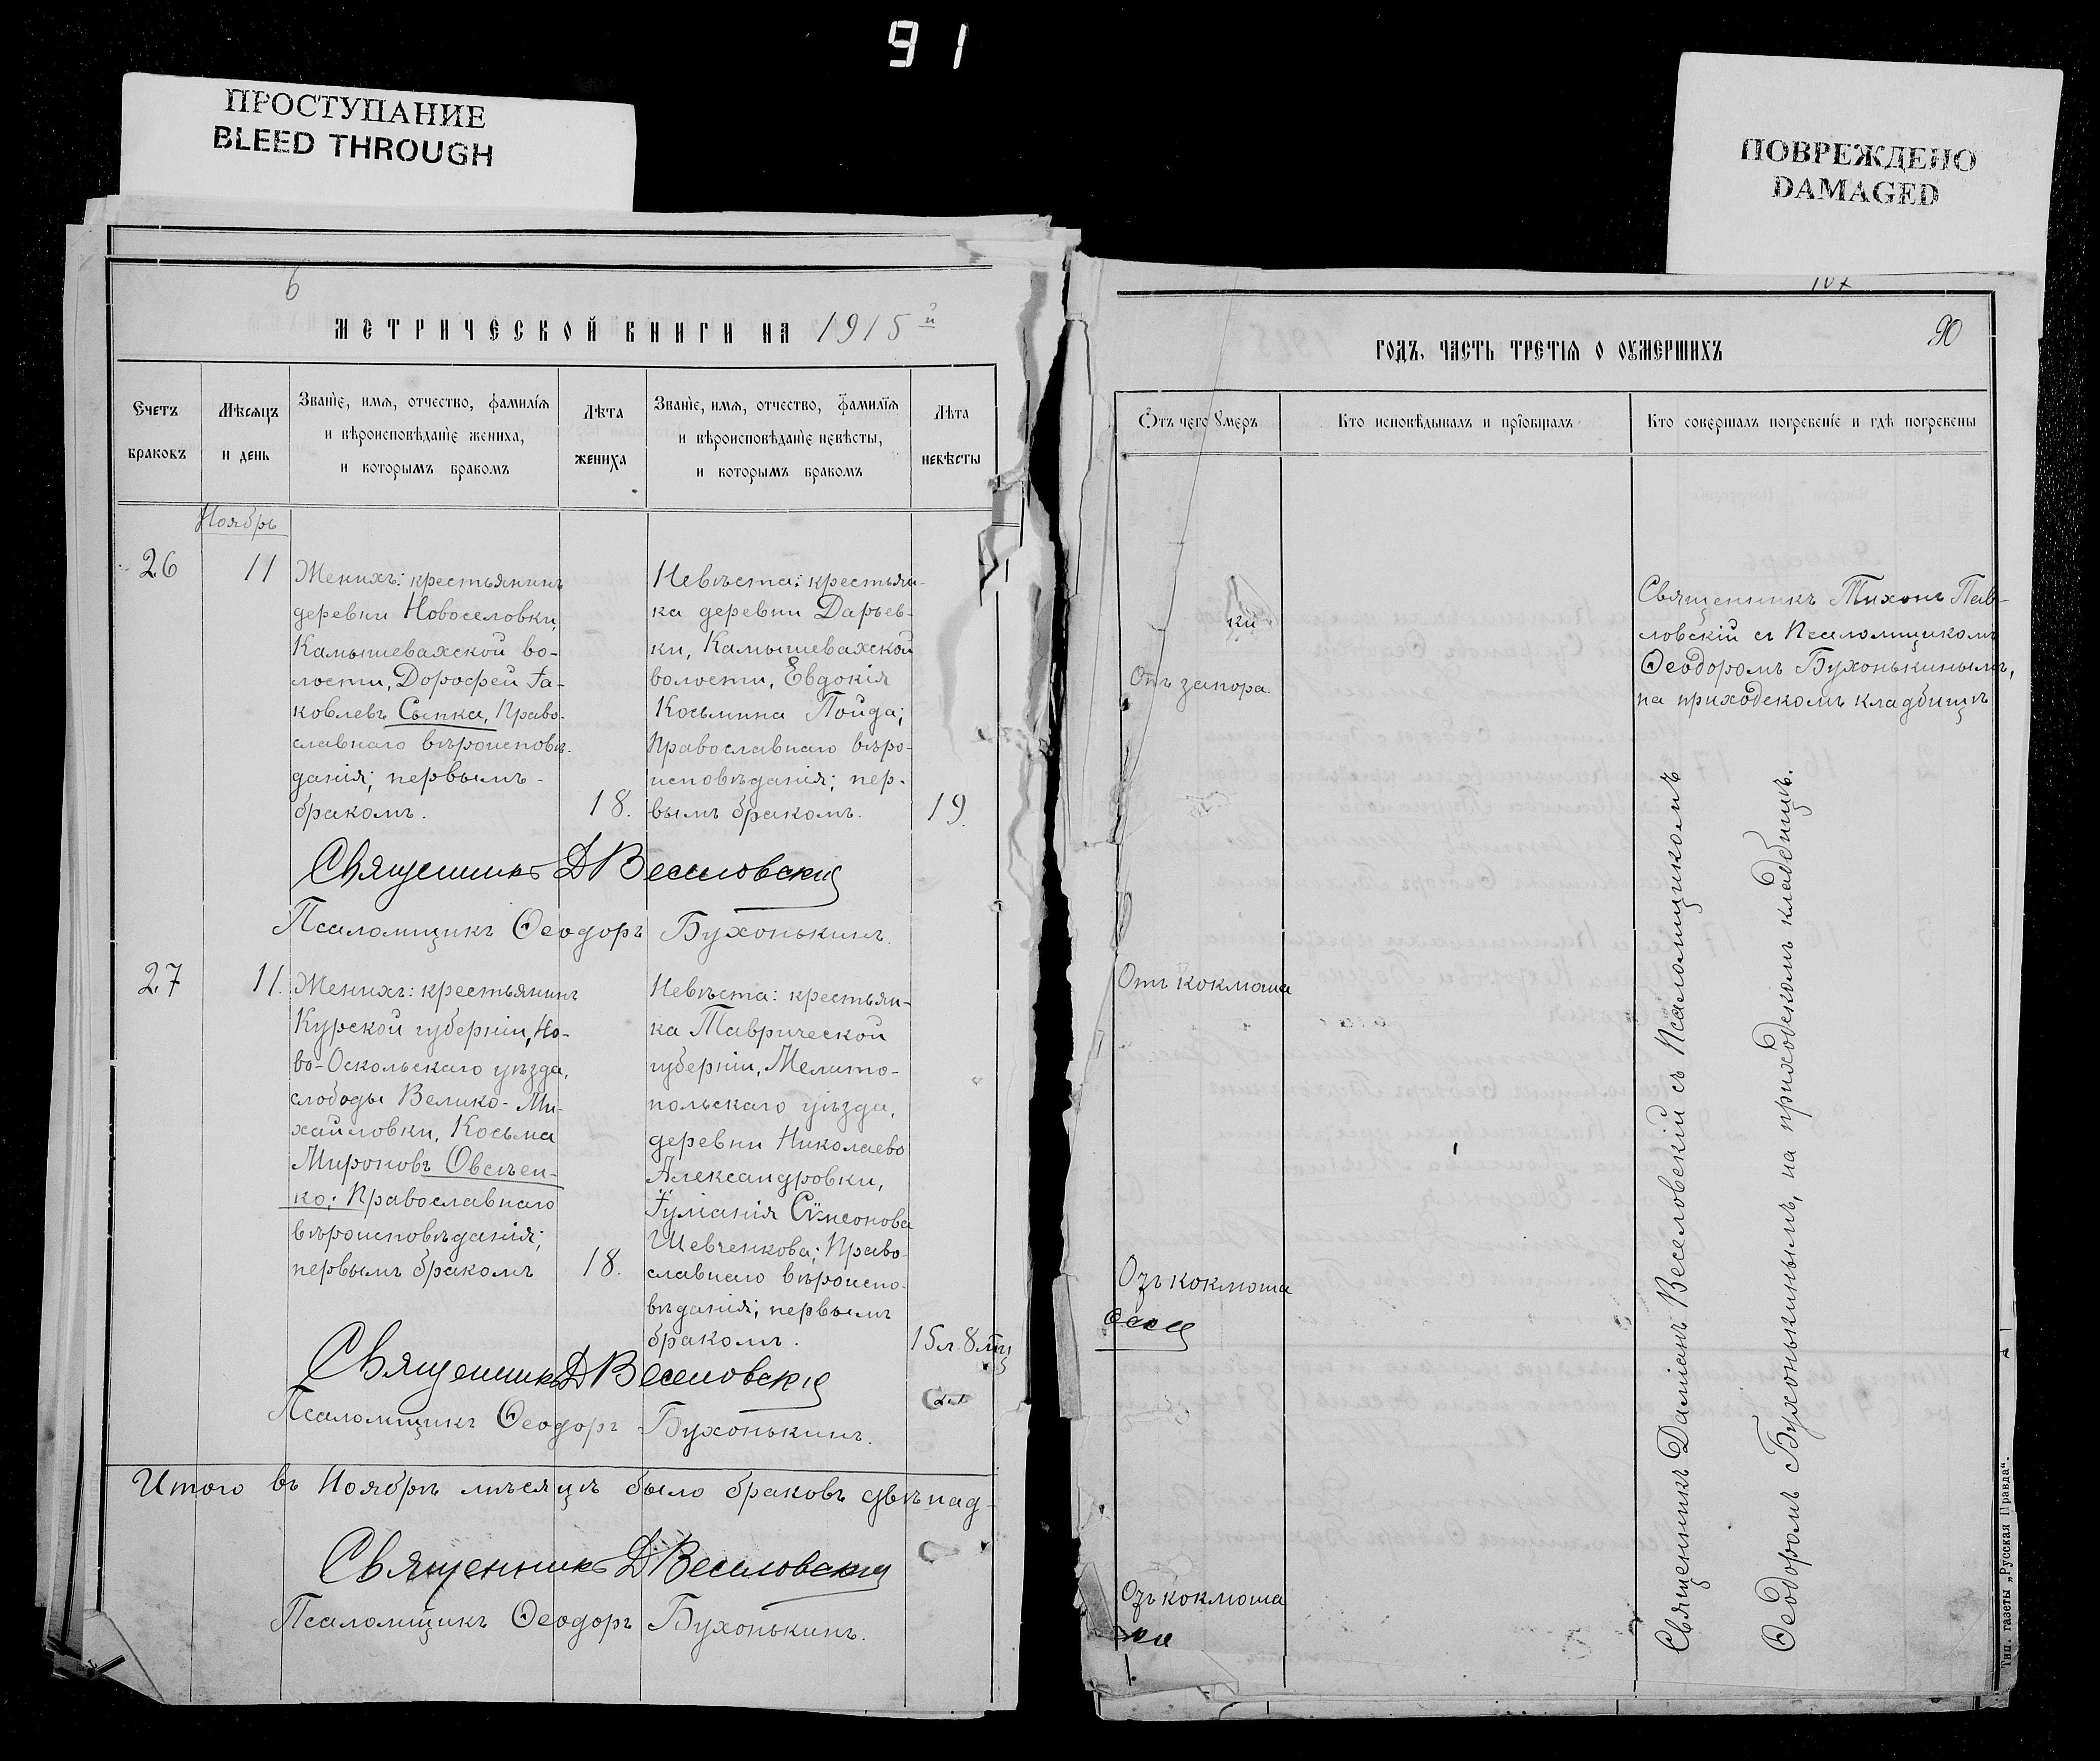 91
ПРОСТУПАНИЕ
BLEED THROUGH
ПОВРЕЖДЕНО
DAMAGED
6
МЕТРИЧЕСКОЙ КНИГИ НА 1915й
Счетъ браковъ
Мѣсяцъ и день
Званїе, имѧ, отчество, фамилїѧ и вѣроисповѣданїе жениха, и которымъ бракомъ
Лѣта жениха
Званїе, имѧ, отчество, фамилїѧ и вѣроисповѣданїе невѣсты, и которымъ бракомъ
Лѣта невѣсты
Ноябрь
26
11
Женихъ: крестьянинъ
деревни Новоселовки,
Камышевахской во-
лости, Дорофей Іа-
ковлевъ Сыпка, Право-
славнаго вѣроисповѣ-
данія; первымъ
бракомъ.
18.
Невѣста: крестьян-
ка деревни Дарьев-
ки, Камышевахской
волости, Евдокія
Косьмина Пойда;
Православнаго вѣро-
исповѣданія; пер-
вымъ бракомъ.
19.
Священникъ Д Веселовскій
Псаломщикъ Ѳеодоръ Бухонькинъ.
27
11.
Женихъ: крестьянинъ
Курской губерніи, Но-
во-Оскольскаго уѣзда,
слободы Велико-Ми-
хайловки, Косьма
Мироновъ Овсѣен-
ко; Православнаго
вѣроисповѣданія;
первымъ бракомъ
18.
Невѣста: крестьян-
ка Таврической
губерніи, Мелито-
польскаго уѣзда,
деревни Николаево
Александровки,
Іуліанія Сѵмеонова
Шевченкова; Право-
славнаго вѣроиспо-
вѣданія; первымъ
бракомъ.
15л. 8м
Священникъ Д Веселовскій
Псаломщикъ Ѳеодоръ Бухонькинъ.
Итого въ Ноябрѣ мѣсяцѣ было браковъ двѣнад-
Священникъ Д Веселовскій
Псаломщикъ Ѳеодоръ Бухонькинъ.
90
ГОДЪ, ЧАСТЬ ТРЕТІѦ О ОУМЕРШИХЪ
Ѿтъ чего Умеръ
Кто исповѣдывалъ и прїобщалъ
Кто совершалъ погребенїе и гдѣ погребены
ки
Отъ запора.
Священникъ Тихонъ Пав-
ловскій съ Псаломщикомъ
Ѳеодоромъ Бухонькинымъ,
на приходскомъ кладбищѣ
Отъ коклюша
Отъ коклюша
Отъ коклюша
Священникъ Даміанъ Веселовскій съ Псаломщикомъ
Ѳеодоромъ Бухонькинымъ, на приходскомъ кладбищѣ.
Тип. газеты „Русская Правда“.